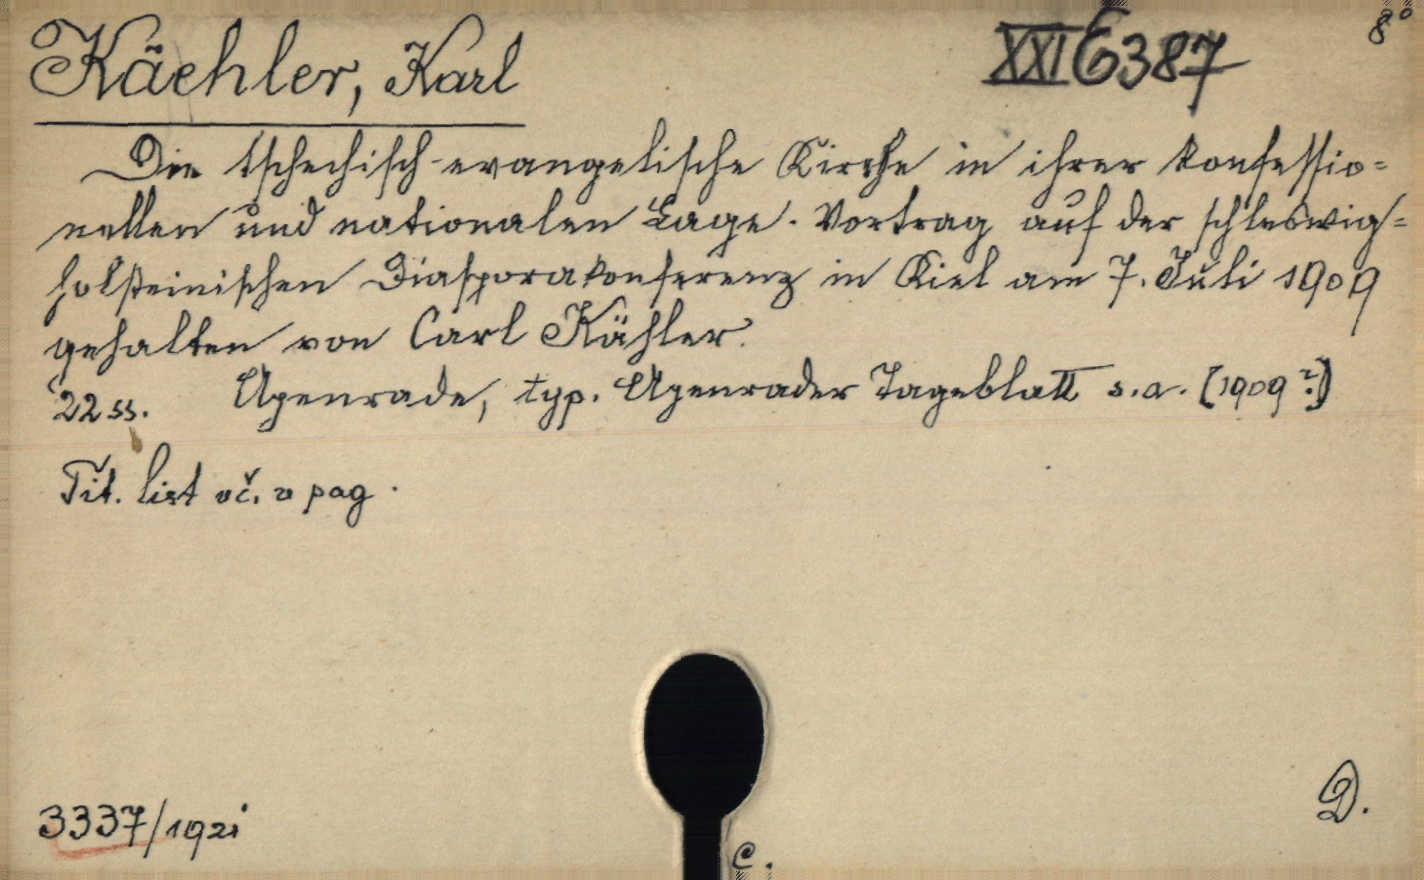 Käehler, Karl XXI E 387 8°
Die tschechisch-evangelische Kirche in ihrer konfessio=
nellen und nationalen Lage. Vortrag auf der schleswig=
holsteinischen Diasporakonferenz in Kiel am 7. Juli 1909
gehalten von Carl Kähler.
22 ss. Apenrade, typ. Apenrader Tageblatt s.a. [1909?]
Tit. list vč. v pag.
3337/1921 D.
C.